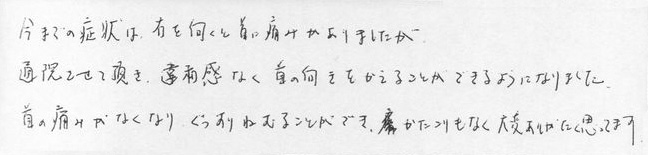 今までの症状は、右を向くと首に痛みがありましたが
通院させて頂き、違和感なく首の向きをかえることができるようになりました。
首の痛みがなくなり、ぐっすりねむることができ、肩かたこりもなく大変ありがたく思ってます